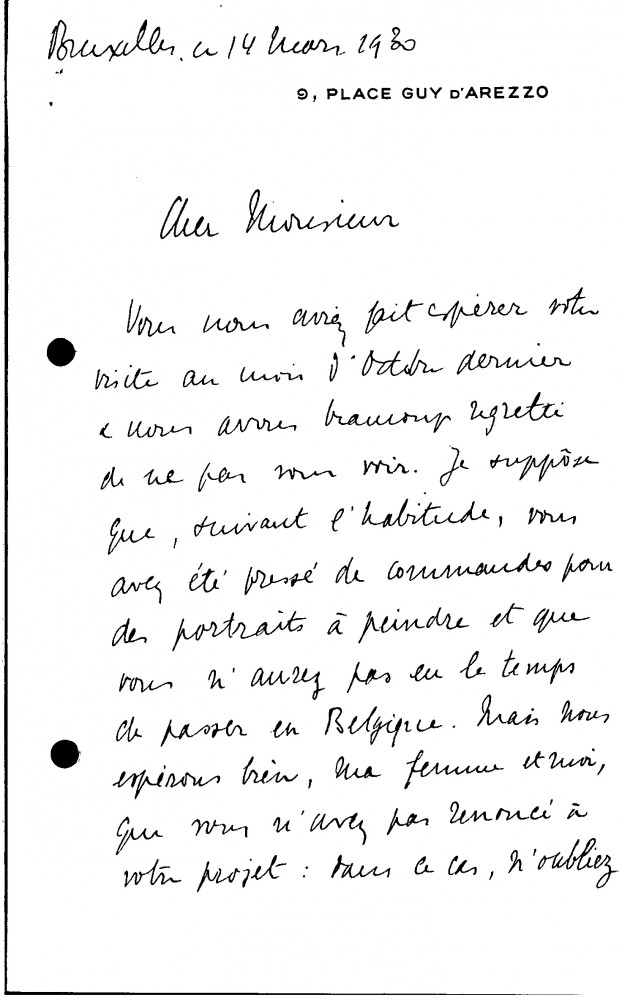 Bruxelles, ce 14 Mars 1930
9, PLACE GUY D'AREZZO
Cher Monsieur
Vous nous aviez fait espérer votre
visite au mois d'Octobre dernier
& nous avons beaucoup regretté
de ne pas vous voir. Je suppose
que, suivant l'habitude, vous
avez été pressé de commandes pour
des portraits à peindre et que
vous n'aurez pas eu le temps
de passer en Belgique. Mais nous
espérons bien, ma femme et moi,
que vous n'avez pas renoncé à
votre projet : dans ce cas, n'oubliez